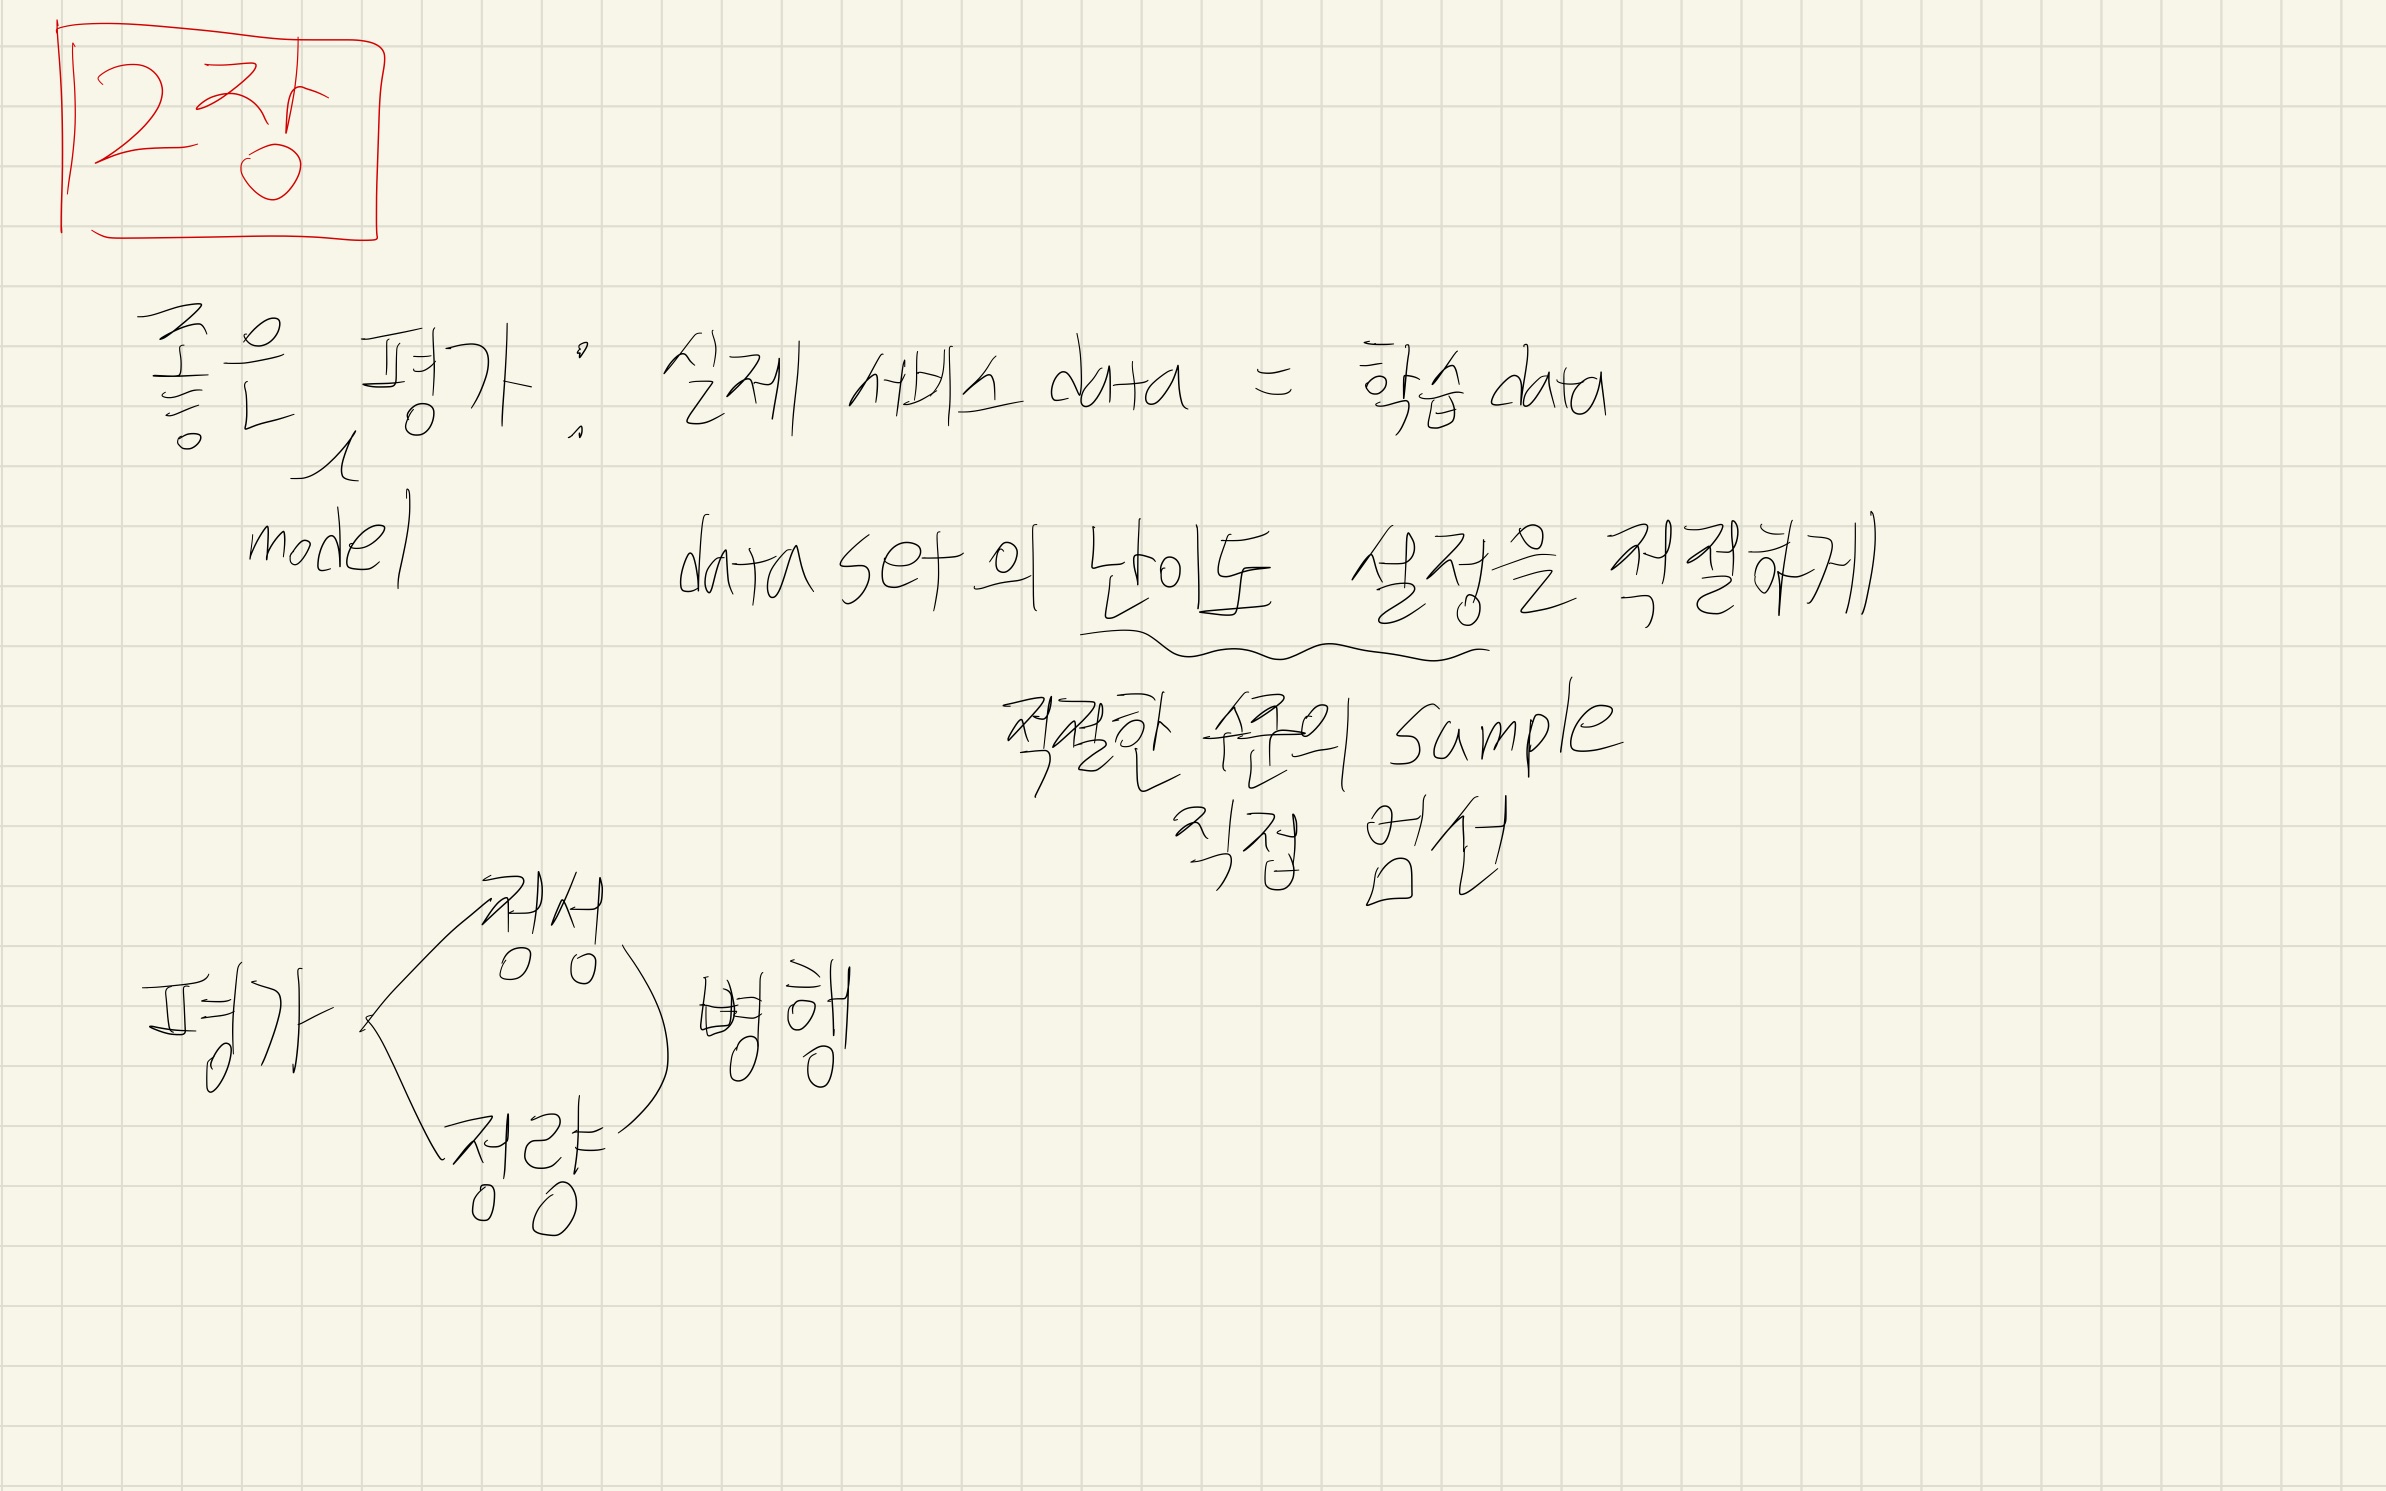 2장
좋은 평가 : 실제 서비스 data = 학습 data
model
data set의 난이도 설정을 적절하게
적절한 수준의 sample
직접 엄선
정성
평가
병행
정량